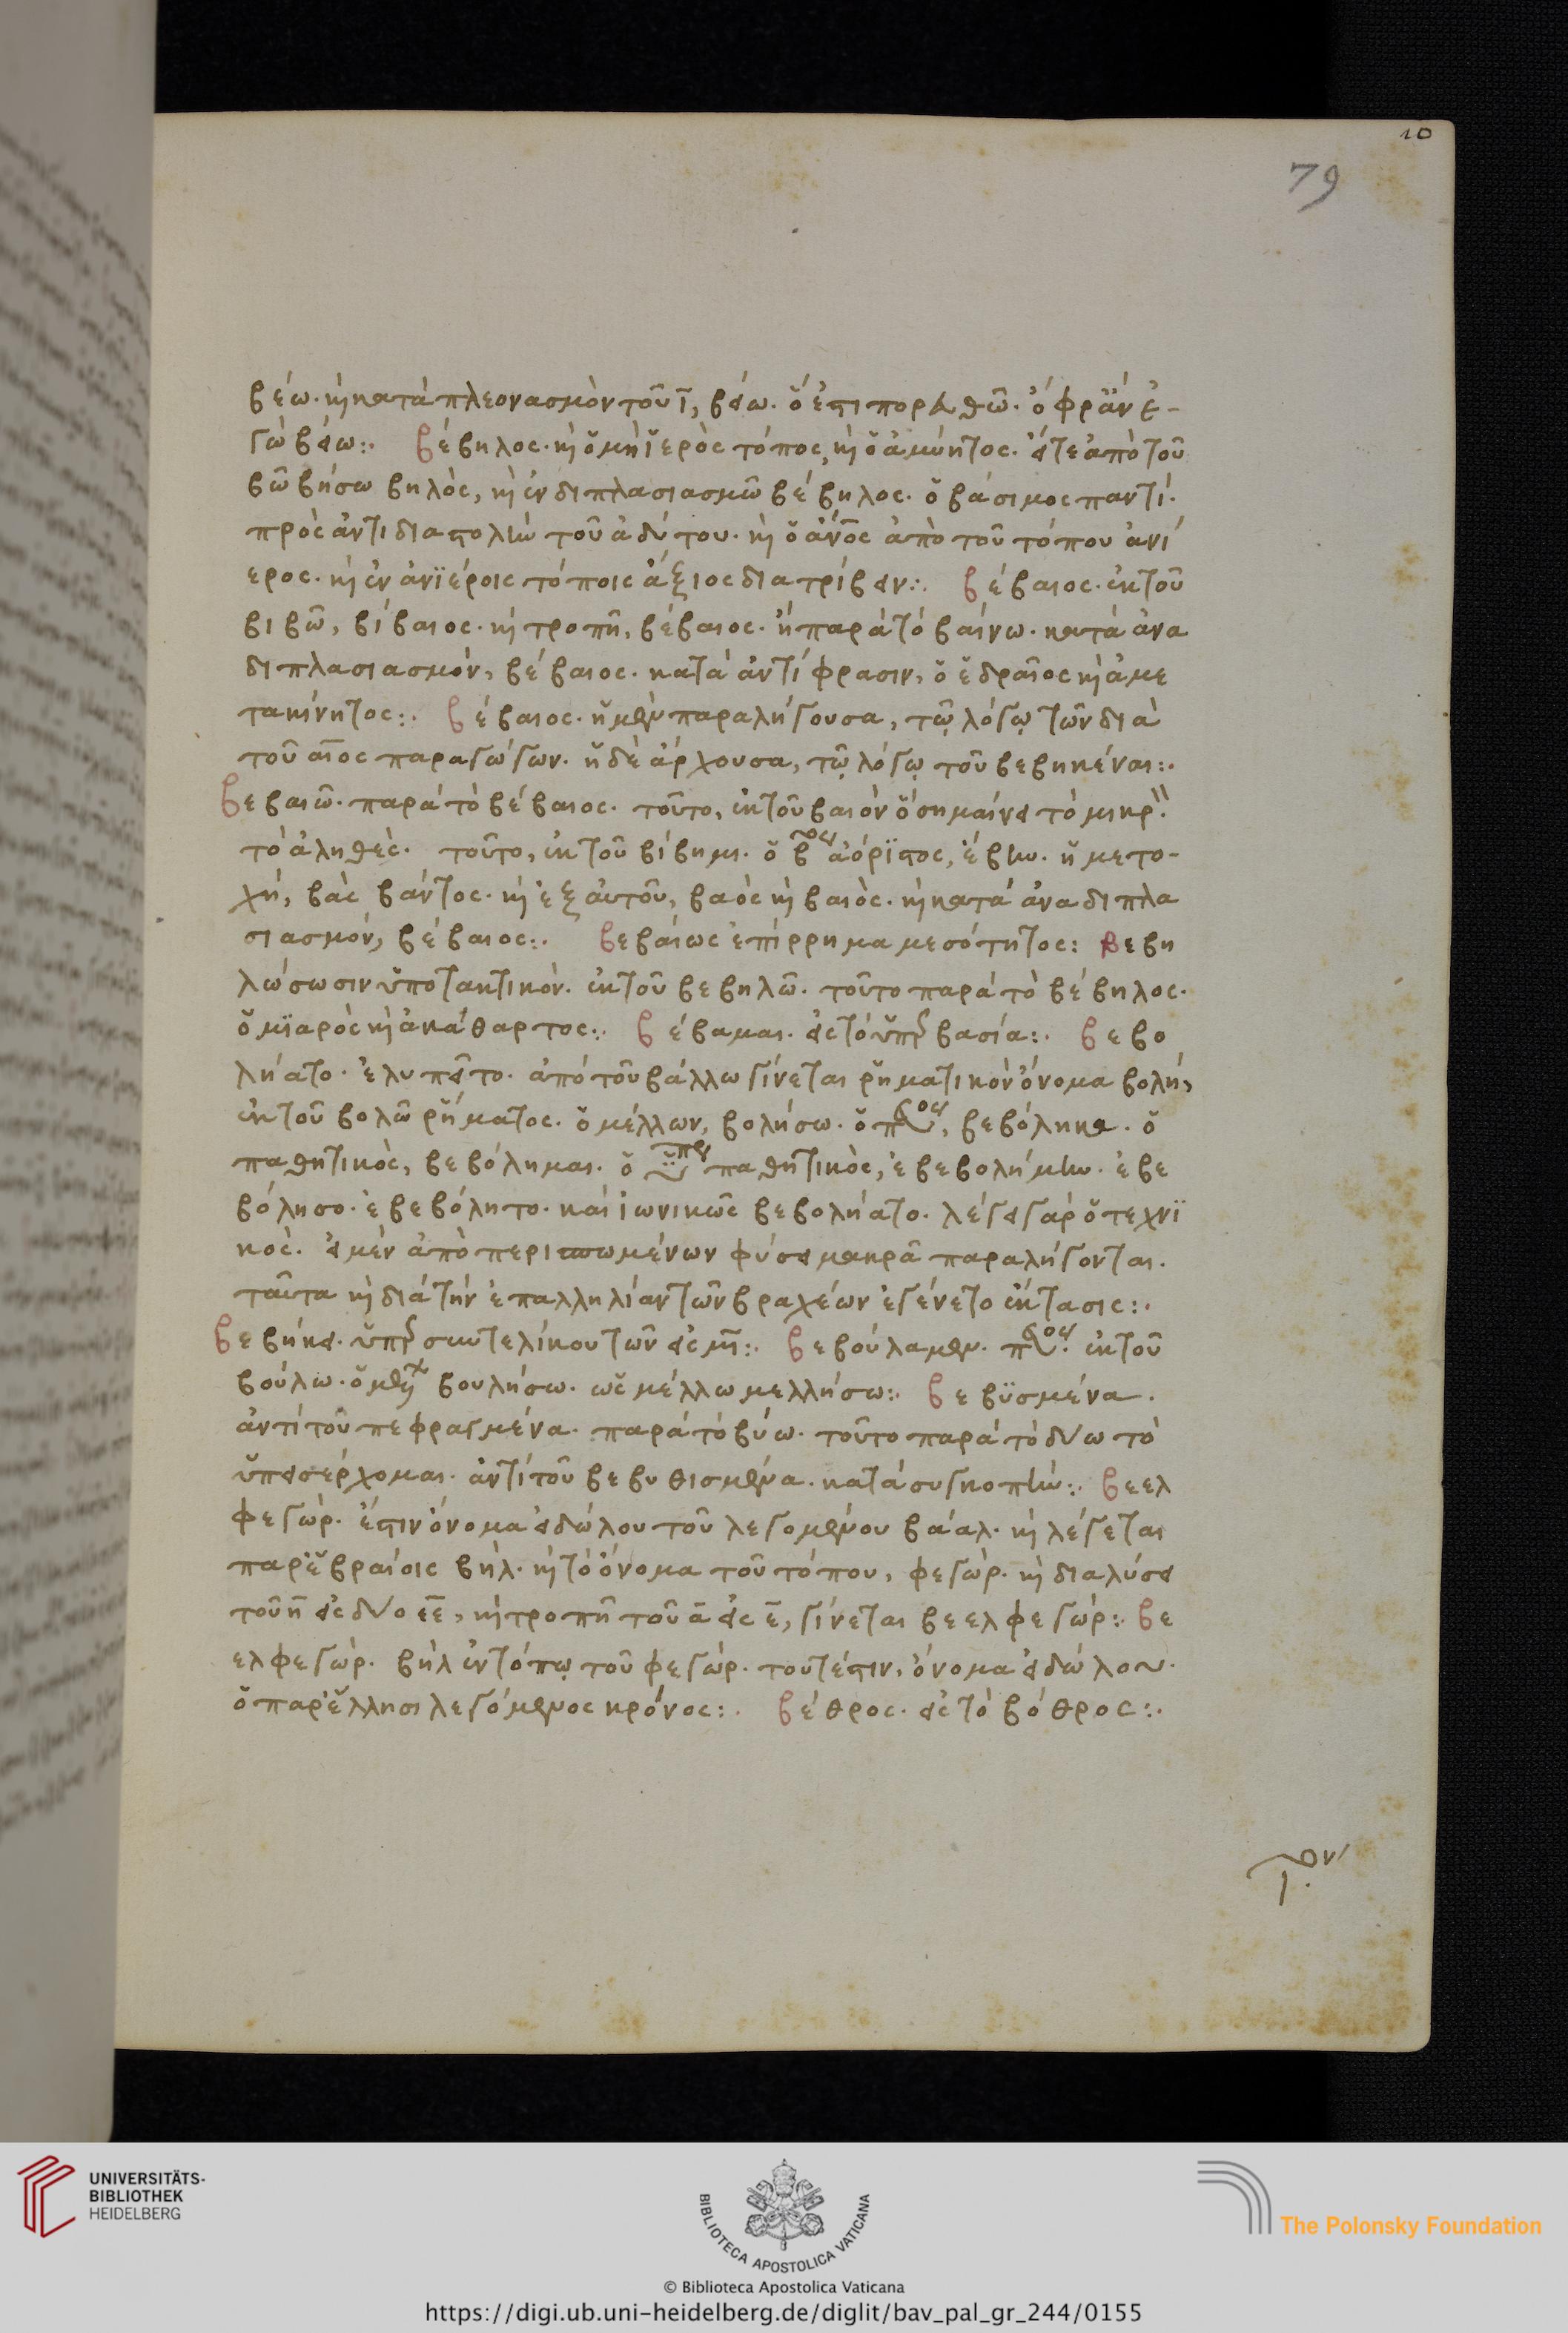 10
79
βέω. κὴ κατὰ πλεονασμὸν τοῦ ῑ, βείω. ὅ ἐστι πορευθῶ. ὄφρἂν ἐ-
γὼ βείω:. βέβηλος. κὴ ὁ μὴ ἱερὸς τόπος, κὴ ὁ ἀμύητος. εἴτε ἀπὸ τοῦ
βῶ βήσω βηλὸς, κὴ ἐν διπλασιασμῶ βέβηλος. ὁ βάσιμος παντί.
πρὸς ἀντιδιαστολὴν τοῦ ἀδύτου. κὴ ὁ ἄνο̅ς ἀπὸ τοῦ τόπου ἀνί
ερος. κὴ ἐν ἀνϊέροις τόποις ἄξιος διατρίβειν:. βέβαιος. ἐκ τοῦ
βιβῶ, βίβαιος. κὴ τροπῆ, βέβαιος. ἢ παρὰ τὸ βαίνω. κατὰ ἀνα
διπλασιασμὸν, βέβαιος. κατὰ ἀντίφρασιν, ὁ ἑδραῖος κὴ ἀμε
τακίνητος:. βέβαιος. ἡ μὲν παραλήγουσα, τῶ λόγω τῶν διὰ
τοῦ αῖος παραγώγων. ἡ δὲ ἄρχουσα, τῶ λόγω τοῦ βεβηκέναι:.
βεβαιῶ. παρὰ τὸ βέβαιος. τοῦτο, ἐκ τοῦ βαιὸν ὃ σημαίνει τὸ μικρ̀.
τὸ ἀληθὲς. τοῦτο, ἐκ τοῦ βίβημι. ὁ βος ἀόριστος, ἔβην. ἡ μετο-
χή, βὰς βάντος. κὴ ἐξ αὐτοῦ, βαὸς κὴ βαιὸς. κὴ κατὰ ἀναδιπλα
σιασμόν, βέβαιος:. βεβαίως ἐπίρρημα μεσότητος: βεβη
λώσωσιν ὑποτακτικὸν. ἐκ τοῦ βεβηλῶ. τοῦτο παρὰ τὸ βέβηλος.
ὁ μϊαρὸς κὴ ἀκάθαρτος:. βέβαμαι. εἰς τὸ ὑπερβασία:. βεβο
λήατο. ἐλυπεῖτο. ἀπὸ τοῦ βάλλω γίνεται ῥηματικὸν ὄνομα βολή,
ἐκ τοῦ βολῶ ῥήματος. ὁ μέλλων, βολήσω. ὁ πκος, βεβόληκα. ὁ
παθητικὸς, βεβόλημαι. ὁ ὑπερ παθητικὸς, ἐβεβολήμην. ἐβε
βόλησο. ἐβεβόλητο. καὶ ἰωνικῶς βεβολήατο. λέγει γὰρ ὁ τεχνϊ
κὸς. εἰ μὲν ἀπὸ περισπωμένων φύσει μακρᾶ παραλήγονται.
ταῦτα κὴ διὰ τὴν ἐπαλληλίαν τῶν βραχέων ἐγένετο ἔκτασις:.
βεβήκει. ὑπερσυντελίκου τῶν εἰς μ̅ι̅:. βεβούλαμεν. πκος. ἐκ τοῦ
βούλω. ὁ μέλ βουλήσω. ὡς μέλλω μελλήσω:. βεβϋσμένα.
ἀντὶ τοῦ πεφραγμένα. παρὰ τὸ βύω. τοῦτο παρὰ τὸ δύω τὸ
ὑπεισέρχομαι. ἀντὶ τοῦ βεβυθισμένα. κατὰ συγκοπήν:. βεελ
φεγὼρ. ἔστιν ὄνομα εἰδώλου τοῦ λεγομένου βάαλ. κὴ λέγεται
παρ' ἑβραίοις βὴλ. κὴ τὸ ὄνομα τοῦ τόπου, φεγὼρ. κὴ διαλύσει
τοῦ η̅ εἰς δύο ε̅ε̅, κὴ τροπῆ τοῦ α̅ εἰς ε̅, γίνεται βεελφεγώρ:. βε
ελφεγὼρ. βὴλ ἐν τόπω τοῦ φεγώρ. τουτέστιν, ὄνομα εἰδώλου.
ὁ παρ' ἕλλησι λεγόμενος κρόνος:. βέθρος. εἰς τὸ βόθρος:.
UNIVERSITÄTS-
BIBLIOTHEK
HEIDELBERG
BIBLIOTECA APOSTOLICA VATICANA
The Polonsky Foundation
© Biblioteca Apostolica Vaticana
https://digi.ub.uni-heidelberg.de/diglit/bav_pal_gr_244/0155